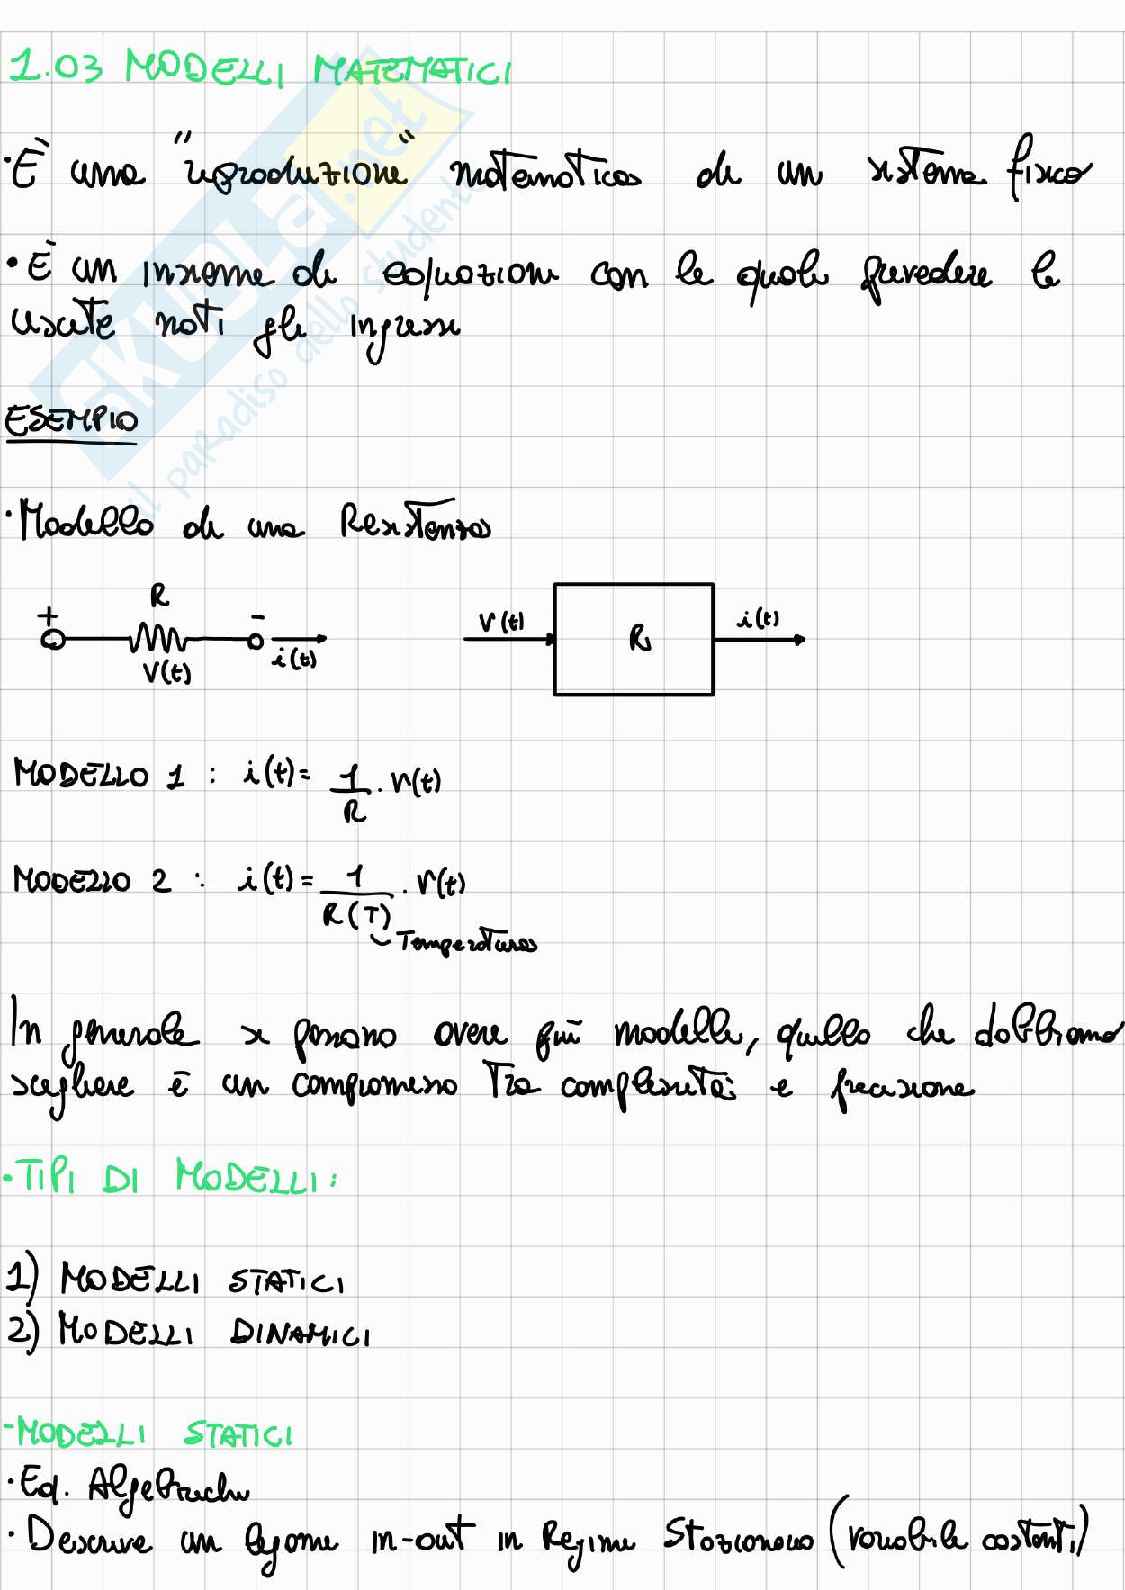 1.03 MODELLI MATEMATICI
• È una "riproduzione" matematica di un sistema fisico
• È un insieme di equazioni con le quali prevedere le
uscite noti gli ingressi
ESEMPIO
• Modello di una Resistenza
+ R - V(t) i(t)
V(t) R i(t)
MODELLO 1 : i(t) = 1/R · V(t)
MODELLO 2 : i(t) = 1/R(T) · V(t)
Temperatura
In generale si possono avere più modelli, quello che dobbiamo
scegliere è un compromesso tra complessità e precisione
• TIPI DI MODELLI:
1) MODELLI STATICI
2) MODELLI DINAMICI
- MODELLI STATICI
• Eq. Algebriche
• Descrive un legame in-out in Regime Stazionario (variabili costanti)
SKUOLA.net
il paradiso dello studente